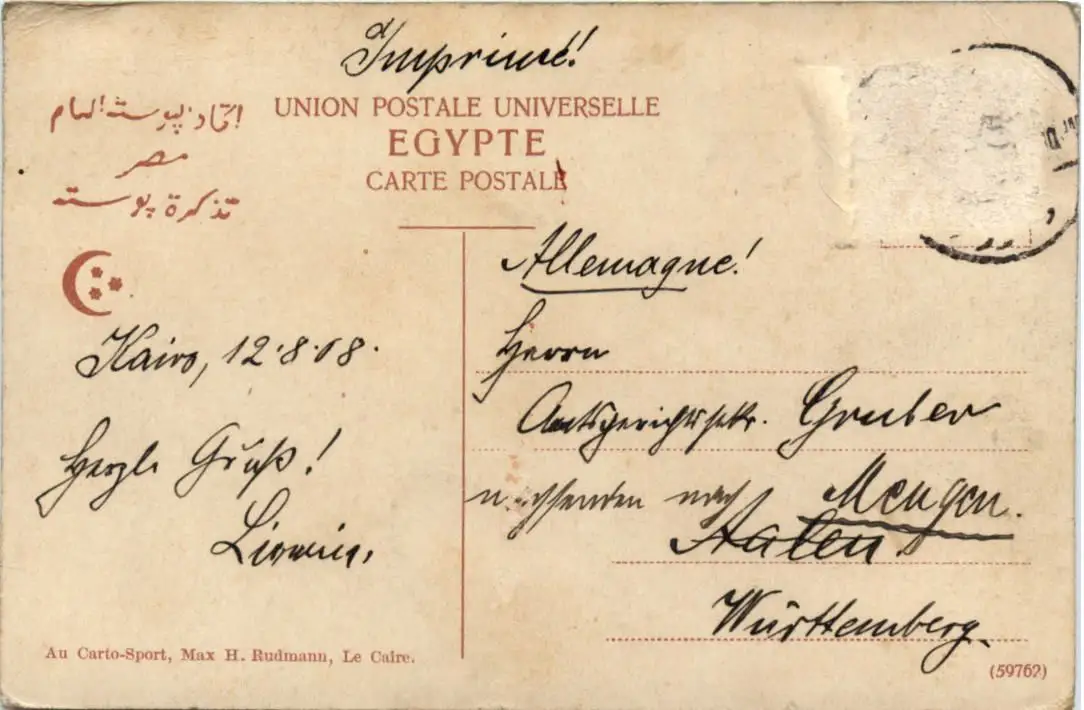 Imprimé!
UNION POSTALE UNIVERSELLE
EGYPTE
CARTE POSTALE
اتحاد بوسته العام
مصر
تذكرة بوسته
Allemagne!
Kairo, 12.8.08.
Herzl. Gruß!
Herrn
Amtsgerichtssekr. Gruber
nachsenden nach Mengen.
Aalen.
Württemberg.
Au Carto-Sport, Max H. Rudmann, Le Caire.
(59762)